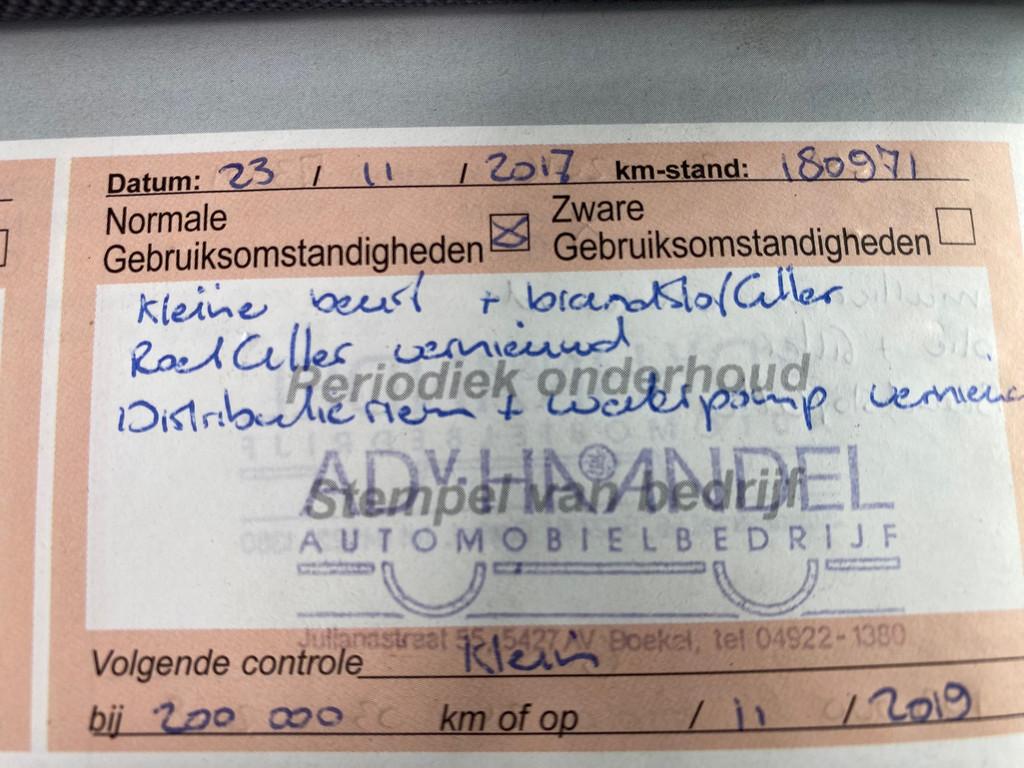 Datum: 23 / 11 / 2017 km-stand: 180971
Normale Gebruiksomstandigheden
Zware Gebruiksomstandigheden
Kleine beurt + brandstoffilter
Roetfilter vernieuwd
Periodiek onderhoud
Distributieriem + waterpomp vernieuwd
Stempel van bedrijf
AD V. HANDEL
AUTOMOBIELBEDRIJF
Julianastraat 55, 5427 AV Boekel, tel 04922-1380
Volgende controle Klein
bij 200 000 km of op / 11 / 2019